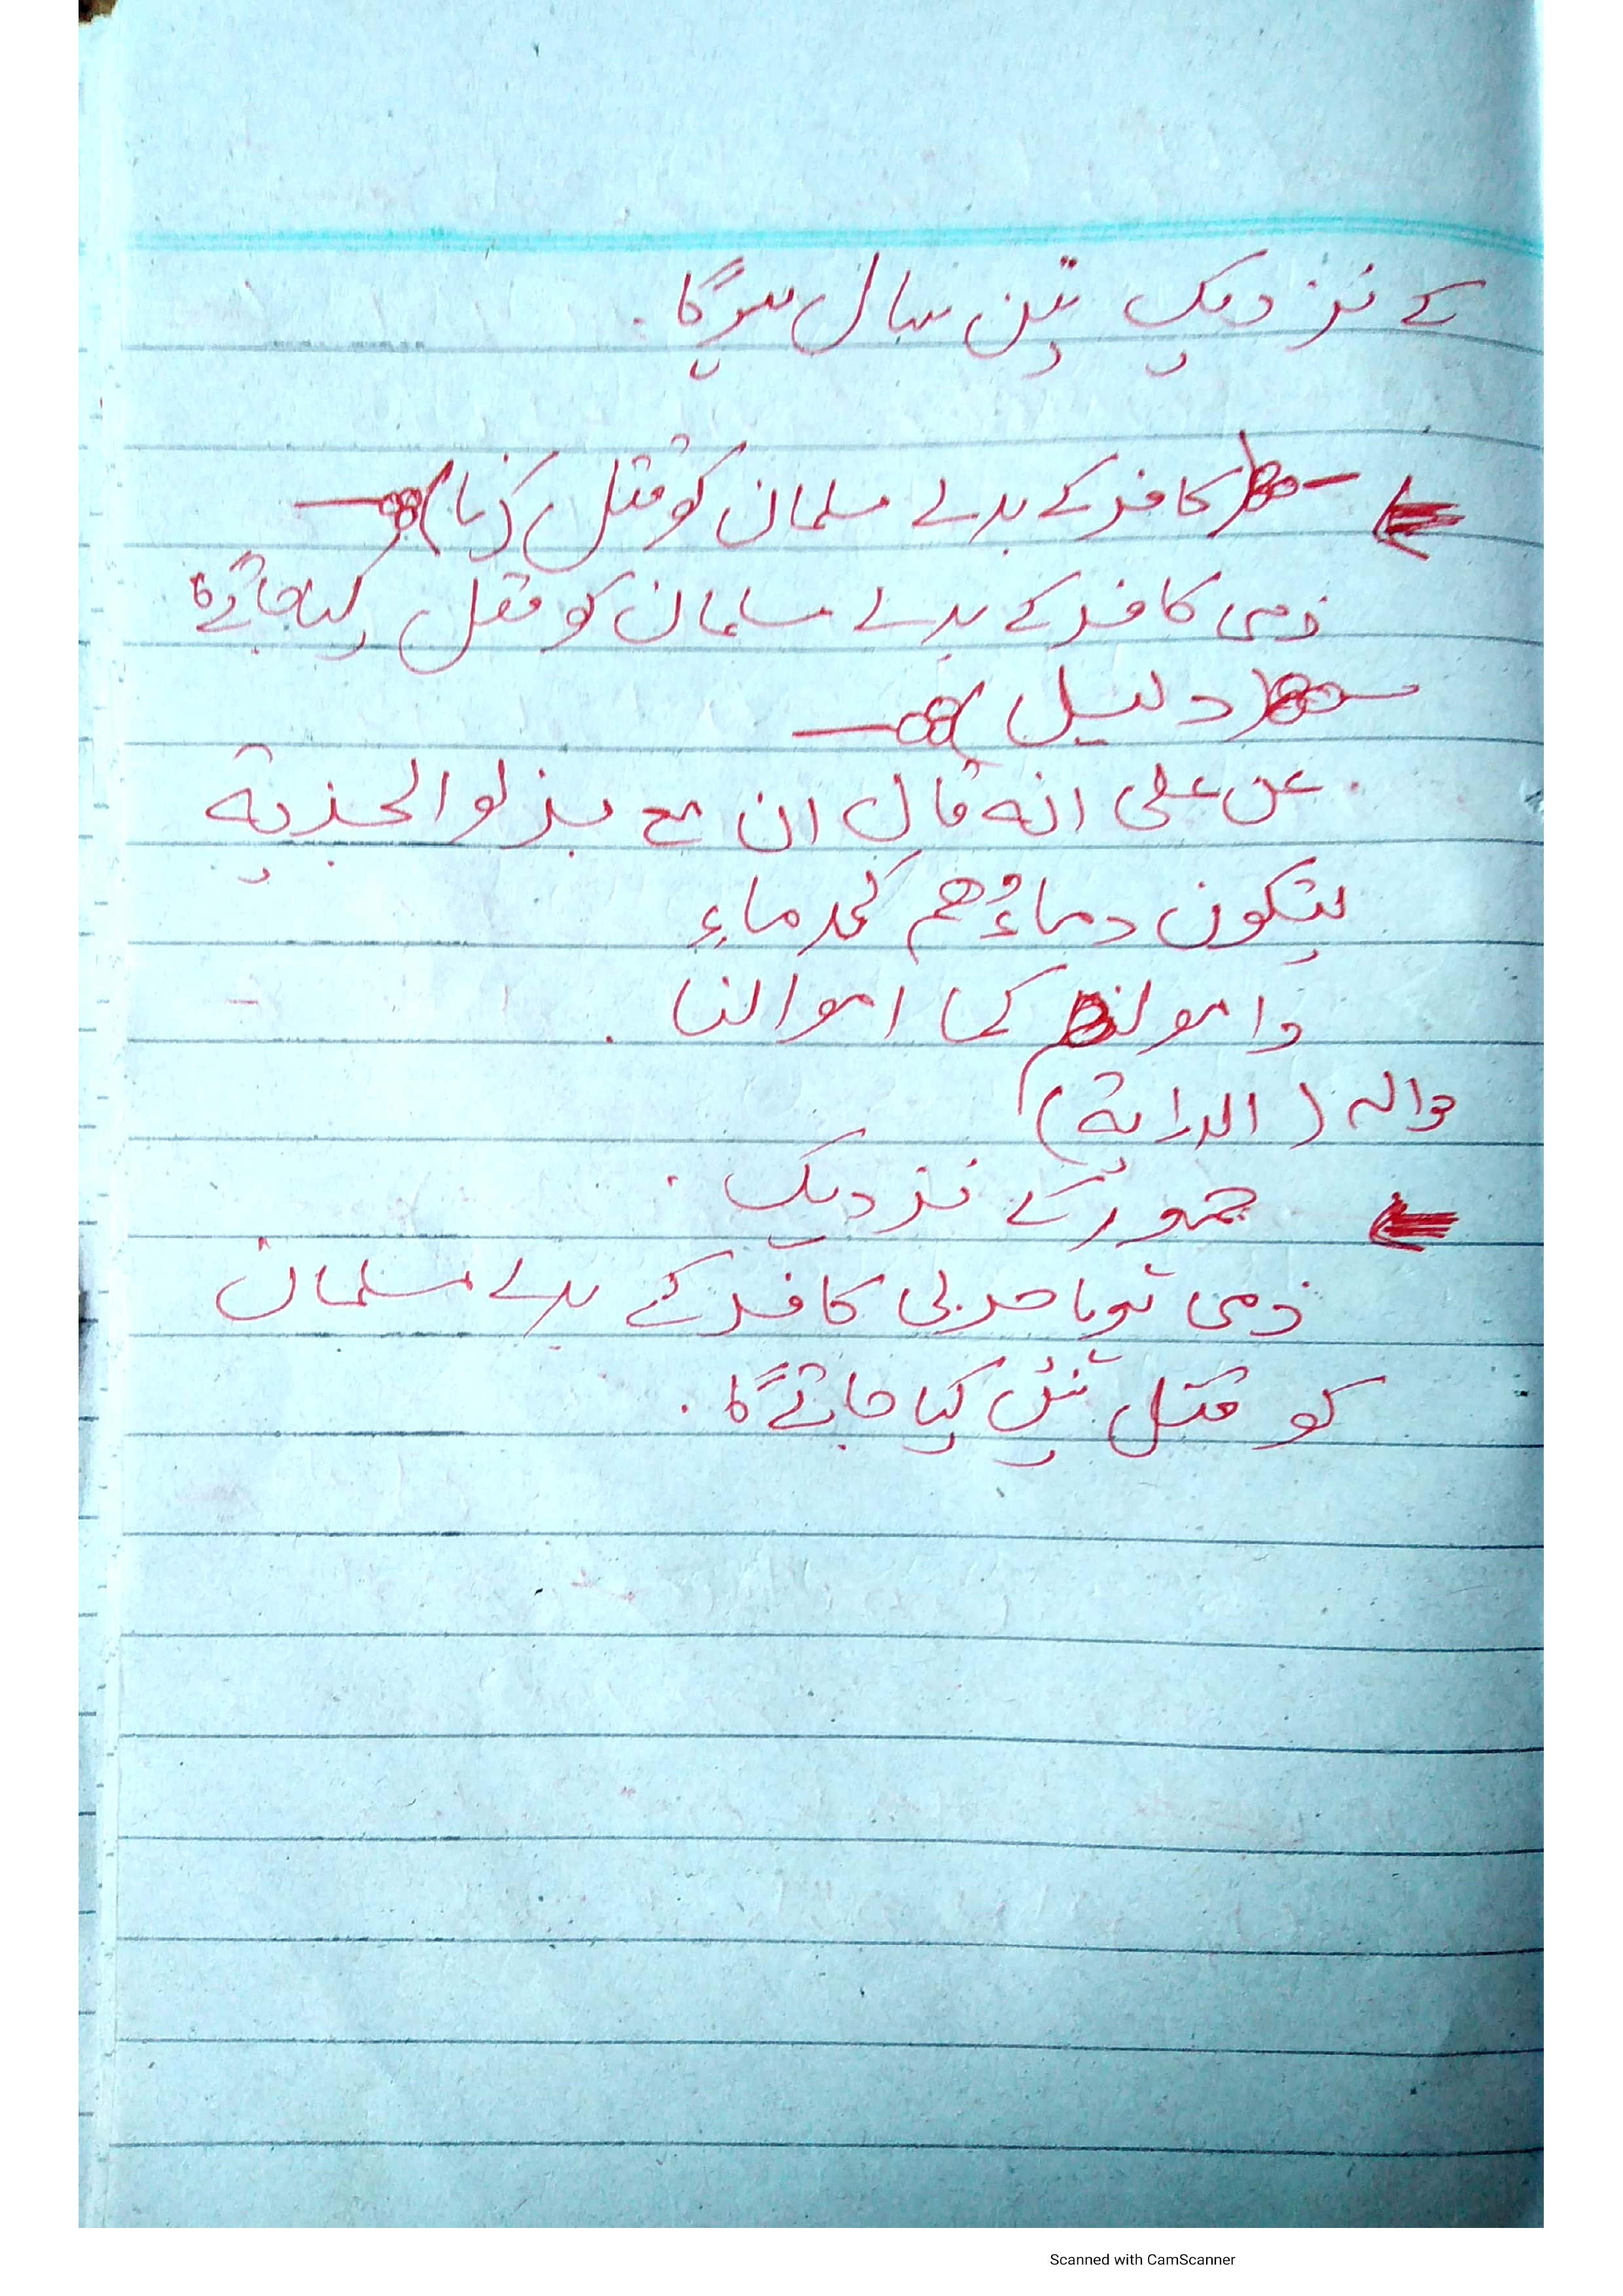 کے نزدیک تین سال ہوگا۔
(کافر کے بدلے مسلمان کو قتل کرنا)
ذمی کافر کے بدلے مسلمان کو قتل کیا جائے گا
(دلیل)
عن علی انه قال ان بذلو الجذية
یتکون دماءُهم کدماءِ
وامولهم کما اموالنا .
حواله (الدراية)
جمہور کے نزدیک .
ذمی ہو یا حربی کافر کے بدلے مسلمان
کو قتل نہیں کیا جائے گا .
Scanned with CamScanner